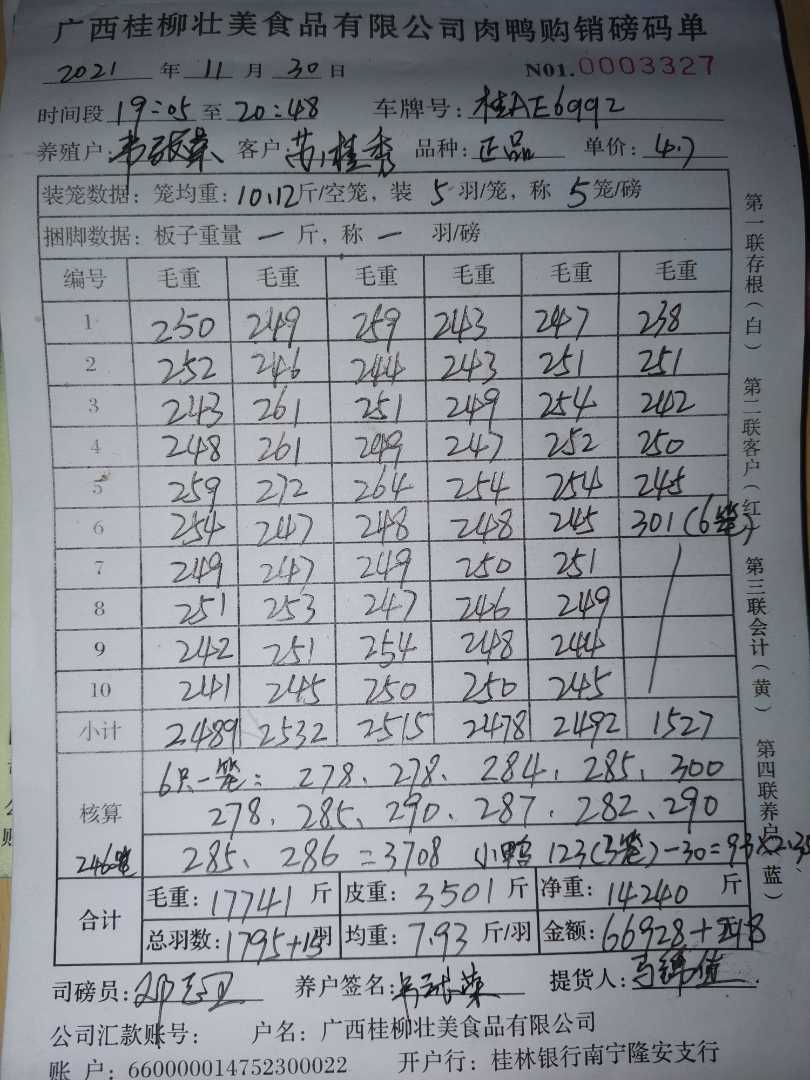 广西桂柳壮美食品有限公司肉鸭购销磅码单
2021 年 11 月 30 日 N01.0003327
时间段 19:05 至 20:48 车牌号: 桂AE6992
养殖户: 客户: 苏桂秀 品种: 正品 单价: 4.7
装笼数据: 笼均重: 10.12斤/空笼, 装 5 羽/笼, 称 5 笼/磅
捆脚数据: 板子重量 一 斤, 称 一 羽/磅
编号 毛重 毛重 毛重 毛重 毛重 毛重
1 250 249 259 243 247 238
2 252 246 244 243 251 251
3 243 261 251 249 254 242
4 248 261 249 247 252 250
5 259 272 264 254 254 245
6 254 247 248 248 245 301(6笼)
7 249 247 249 250 251
8 251 253 247 246 249
9 242 251 254 248 244
10 241 245 250 250 245
小计 2489 2532 2515 2478 2492 1527
6只一笼: 278、278、284、285、300
核算 278、285、290、287、282、290
246笼 285、286=3708 小鸭 123(3笼)-30=93×2.35
合计 毛重: 17741 斤 皮重: 3501 斤 净重: 14240 斤
总羽数: 1795+15羽 均重: 7.93 斤/羽 金额: 66928+218
司磅员: 养户签名: 提货人:
公司汇款账号: 户名: 广西桂柳壮美食品有限公司
账 户: 660000014752300022 开户行: 桂林银行南宁隆安支行
第一联存根(白) 第二联客户(红) 第三联会计(黄) 第四联养户(蓝)